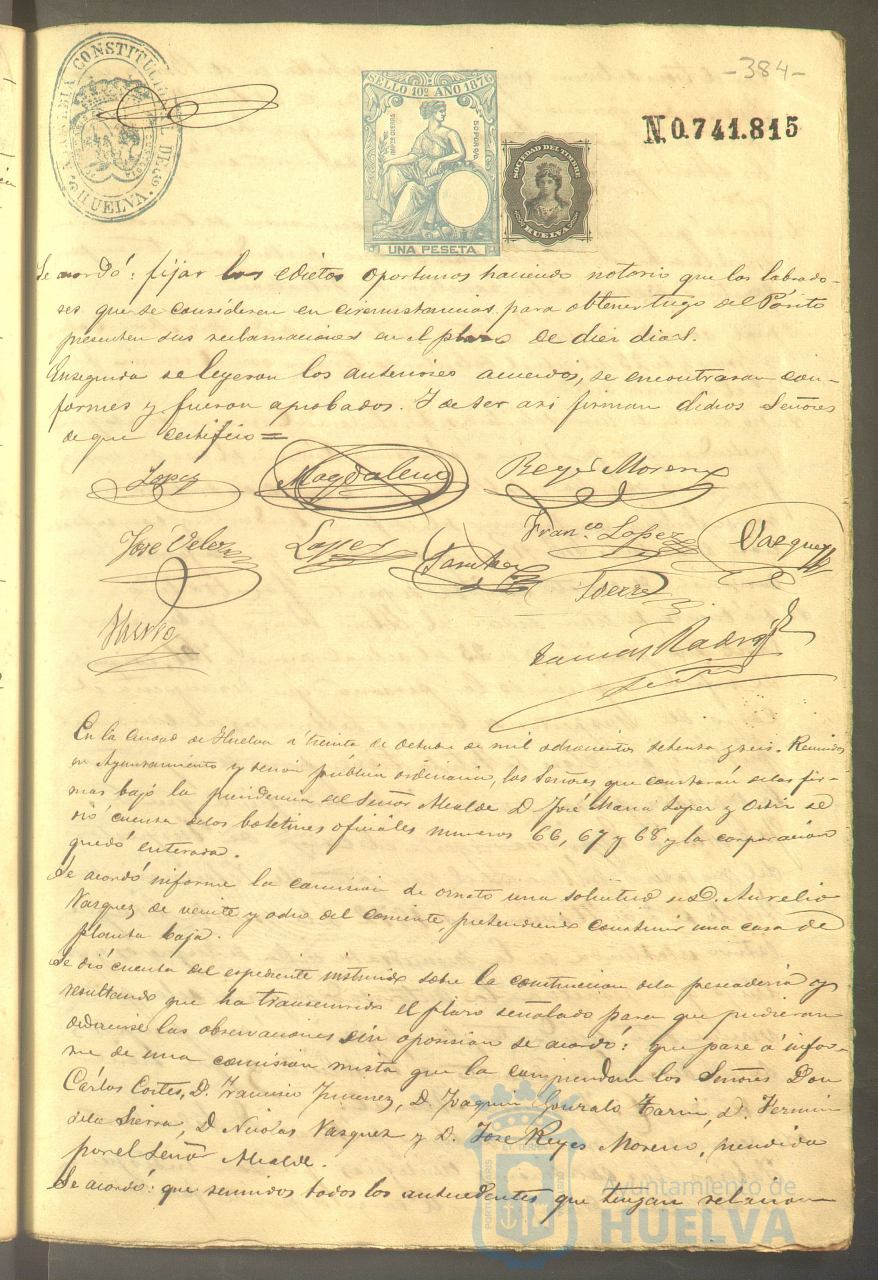 -384-
ALCALDIA CONSTITUCIONAL DE HUELVA.
SELLO 10º AÑO 1876
UNA PESETA
SOCIEDAD DEL TIMBRE
HUELVA
N. 0.741.815
Se acordó: fijar los edictos oportunos haciendo notorio que los labrado-
res que se consideren en circunstancias para obtener trigo del Pósito
presenten sus reclamaciones en el plazo de diez dias.
Enseguida se leyeron los anteriores acuerdos, se encontraron con-
formes y fueron aprobados. Y de ser asi firman dichos Señores
de que certifico =
Lopez Magdalena Reyes Moreno
José Velez Lopez Sanchez Franco. Lopez Vazquez
En la Ciudad de Huelva á treinta de Octubre de mil ochocientos setenta y seis. Reunidos
en Ayuntamiento y sesion pública ordinaria, los Señores que constarán delas fir-
mas bajo la presidencia del Señor Alcalde D. José Maria Lopez y Ortiz se
dió cuenta delos boletines oficiales numeros 66, 67 y 68 y la corporacion
quedó enterada.
Se acordó informe la comision de ornato una solicitud de D. Aurelio
Vazquez de veinte y ocho del corriente, pretendiendo construir una casa de
planta baja.
Se dió cuenta del espediente instruido sobre la construccion dela pescaderia y
resultando que ha transcurrido el plazo señalado para que pudieran
deducirse las observaciones sin oposicion se acordó: que pase á infor-
me de una comision mista que la compondran los Señores Don
Carlos Cortes, D. Francisco Jimenez, D. Joaquin Gonzalo Tarin, D. Fermin
dela Sierra, D. Nicolas Vazquez y D. José Reyes Moreno, presidida
por el Señor Alcalde.
Se acordó: que reunidos todos los antecedentes que tengan relacion
Ayuntamiento de
HUELVA